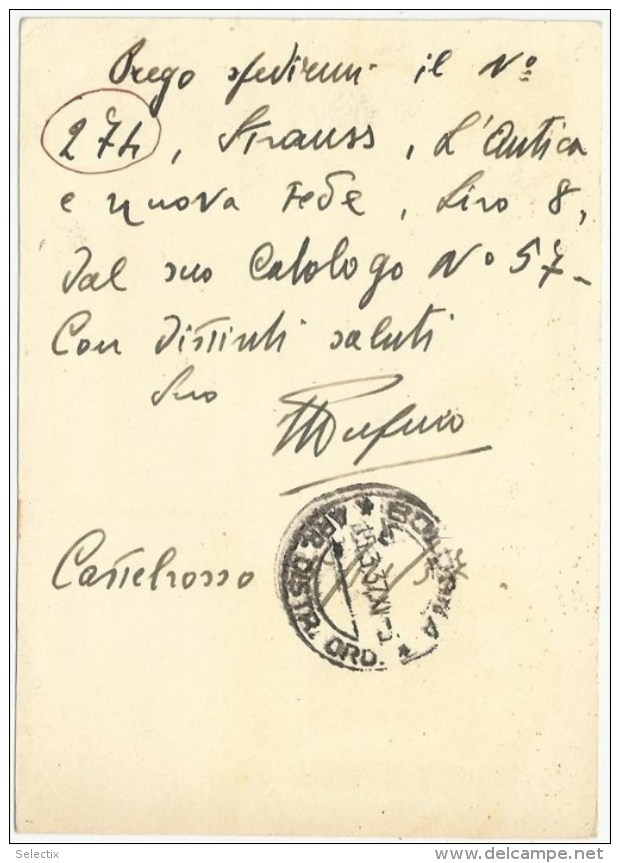 Prego spedirmi il N°
274, Strauss, L'Antica
e nuova Fede, Lire 8,
dal suo Catalogo N° 57-
Con distinti saluti
Suo
Castelrosso
BOLOGNA
ARR. DISTR. ORD.
Selectix
delcampe.net